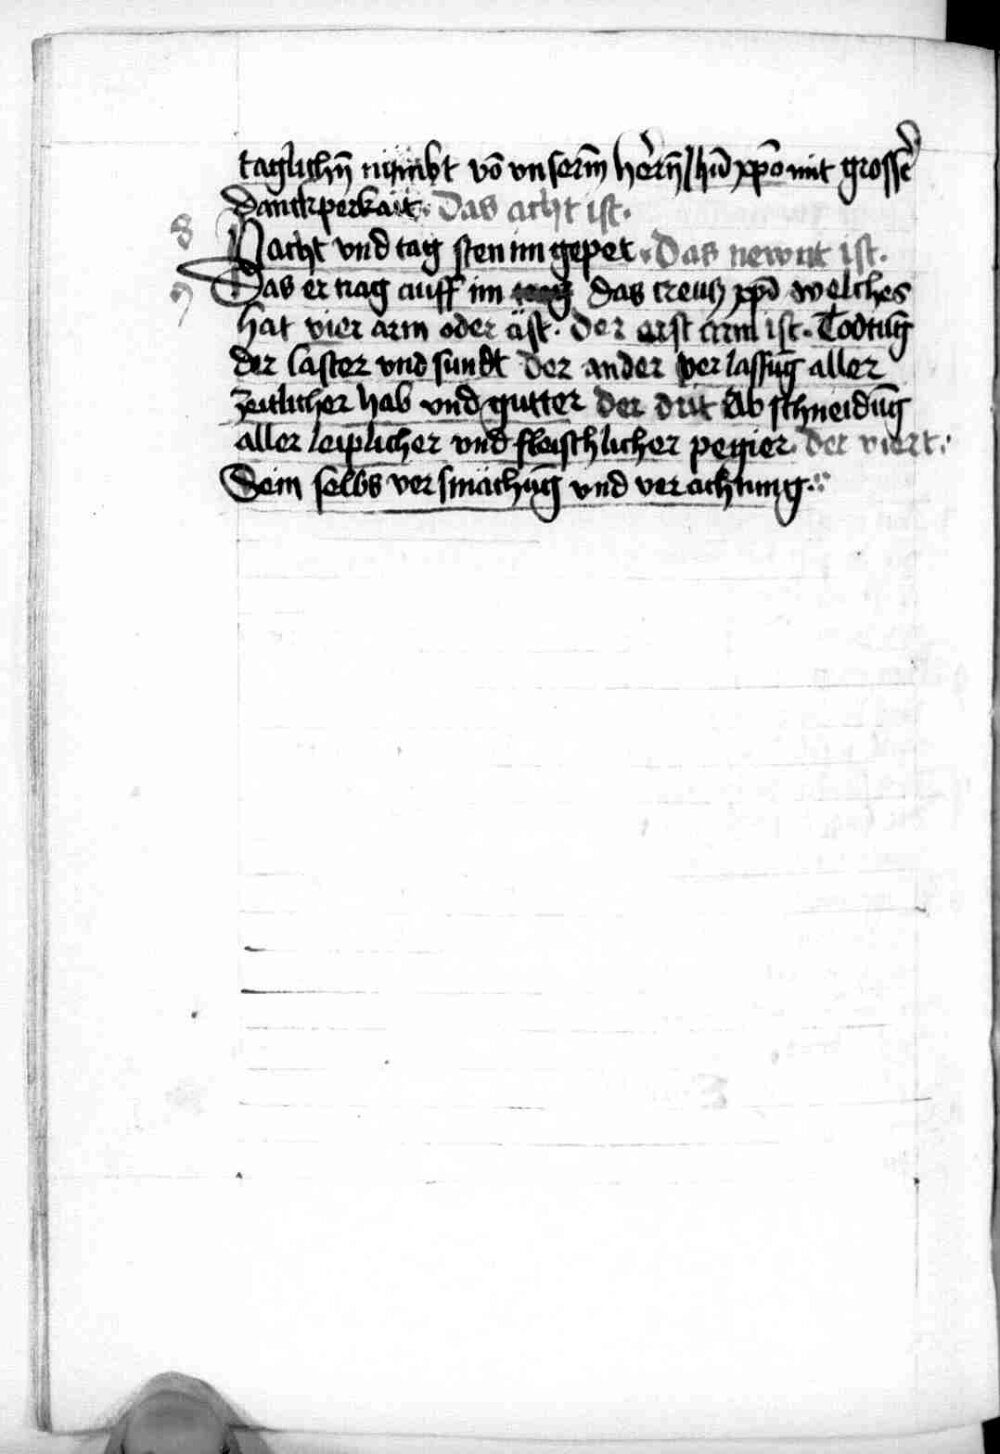 taglichn̄ nimbt vō vnserm̄ herrn̄ ih̄u xp̄o mit grossē
danckperkait. Das acht ist.
8 Nacht vnd tag sten im gepet. Das newnt ist.
9 Das er trag auff im das creutz xp̄i welches
hat vier arm oder äst. Der erst arm ist. Todtūg
der laster vnd sundt Der ander verlassūg aller
zeitlicher hab vnd gutter Der drit Abschneidūg
aller leiplicher vnd fleischlicher pegier. Der viert.
Sein selbs versmächūg vnd verachtung.